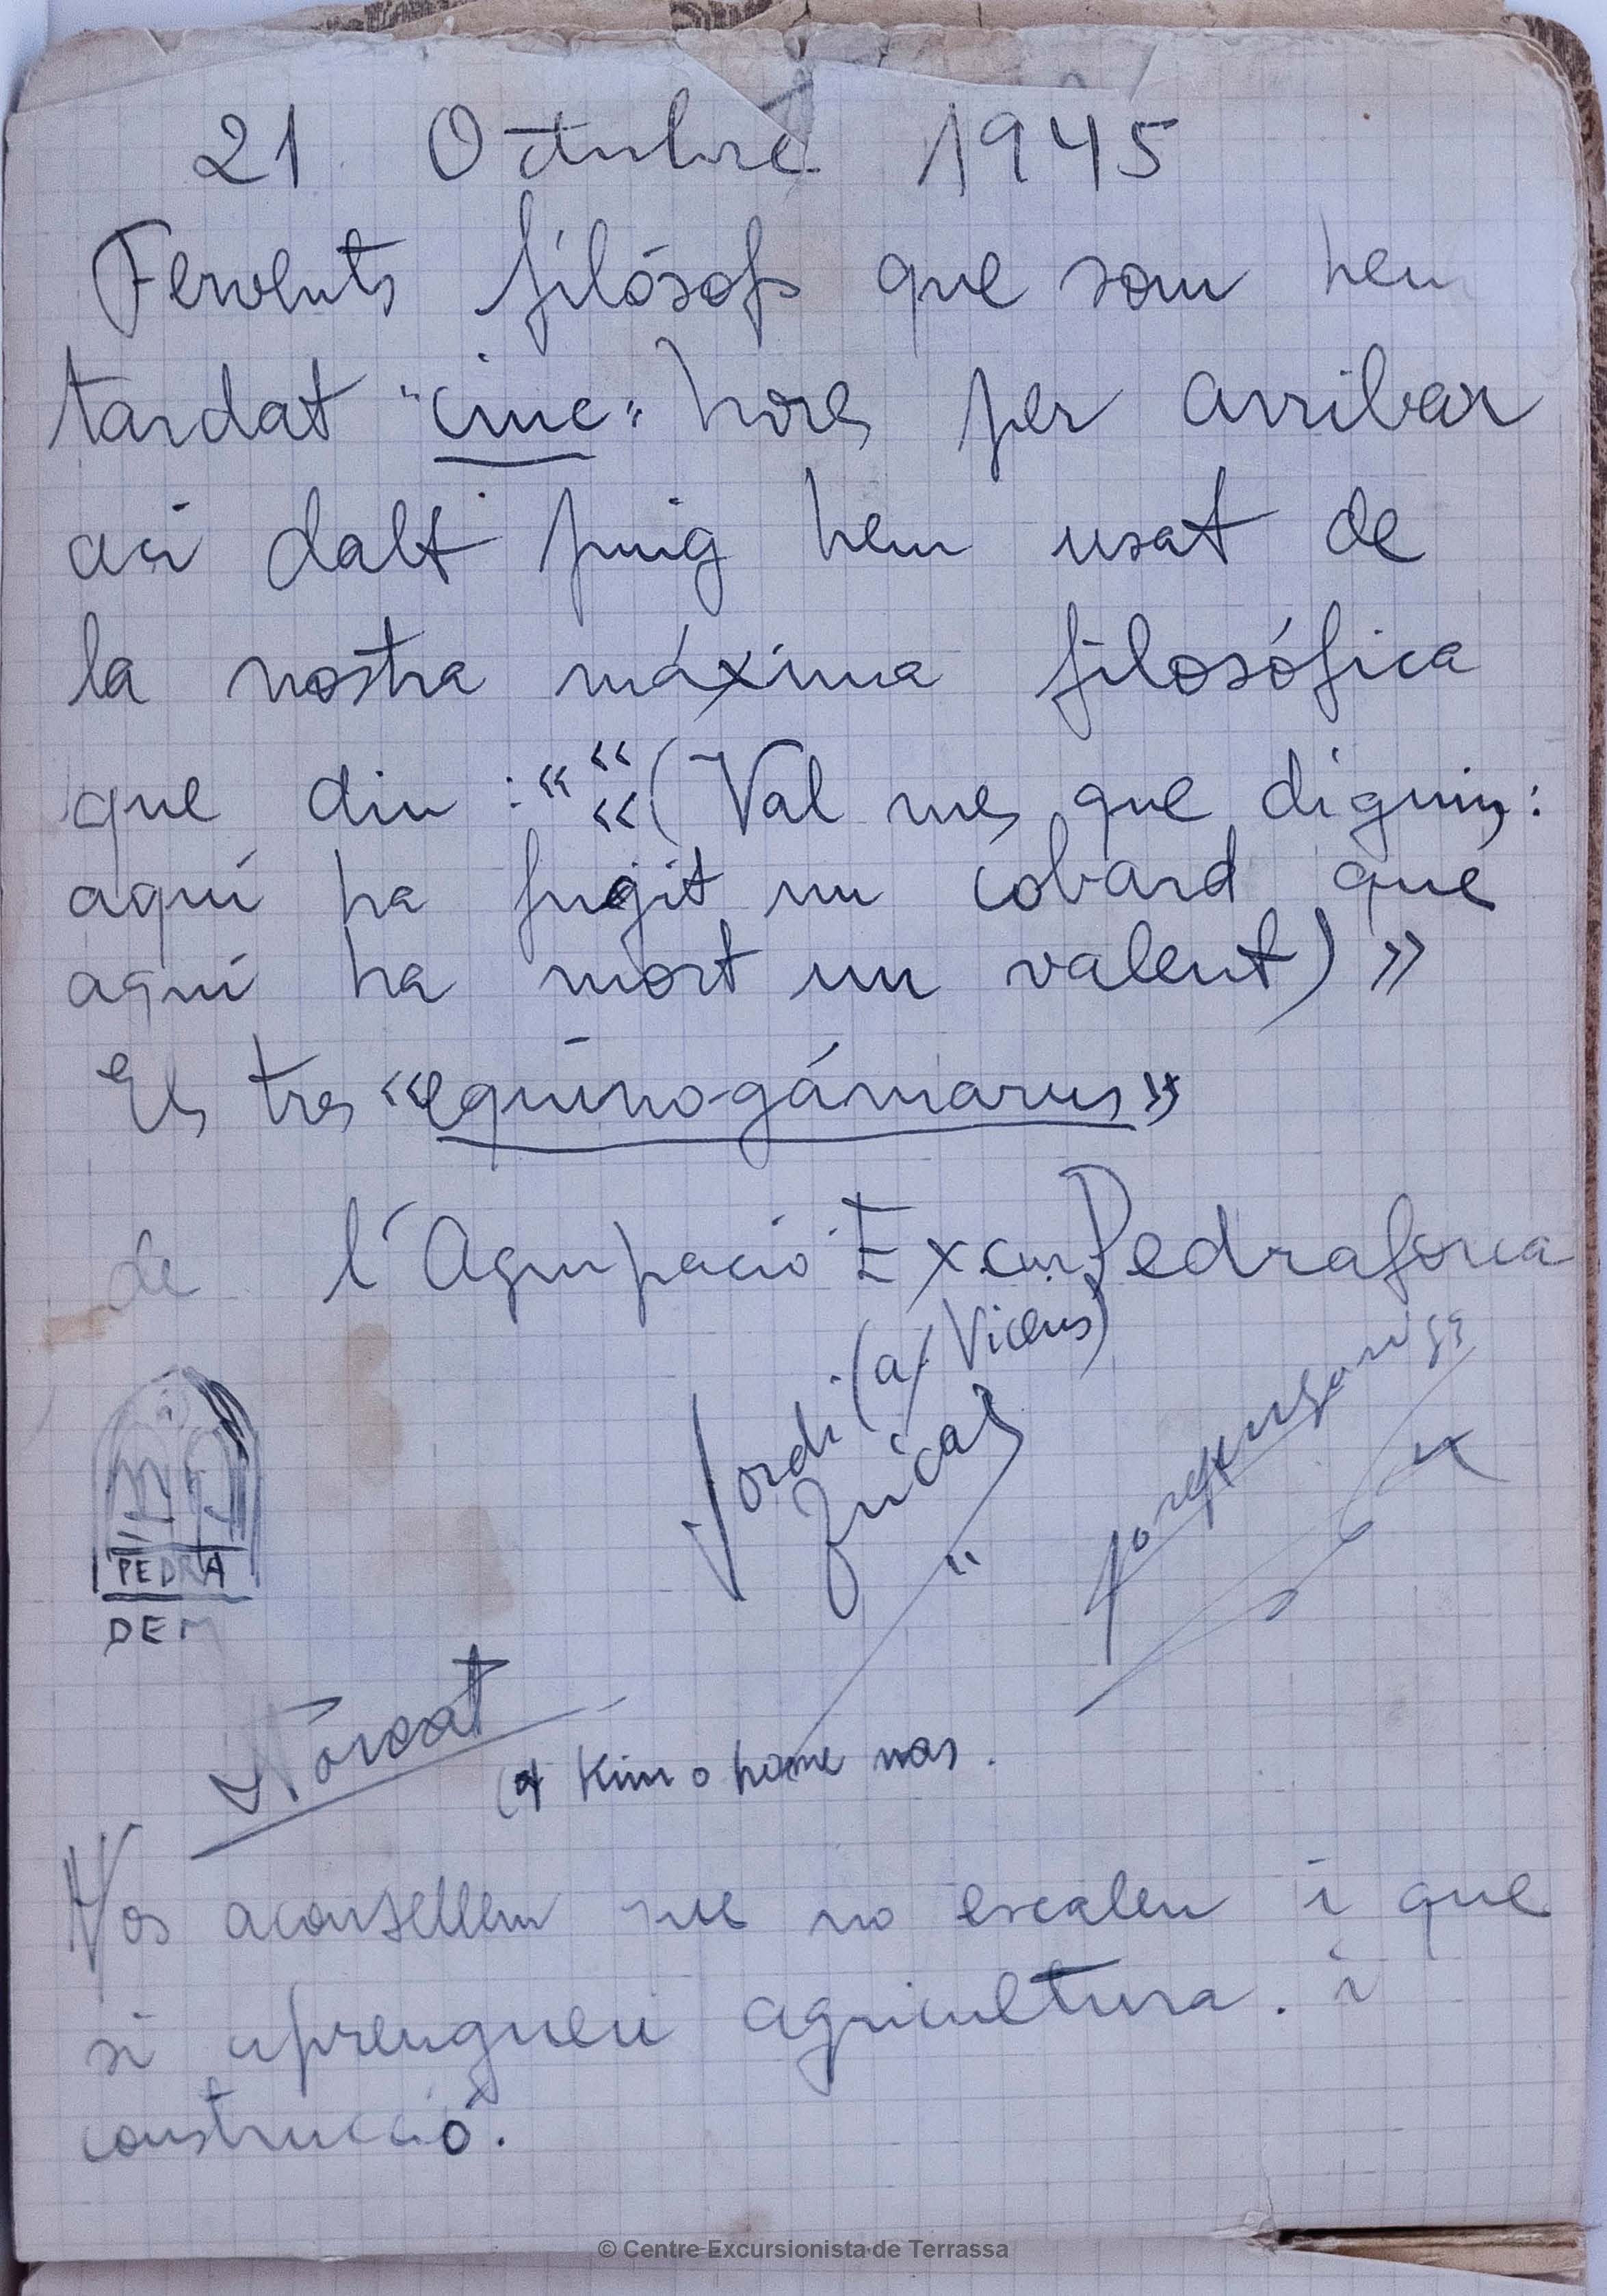 21 Octubre 1945
Fervents filósofs que som hem
tardat "cinc" hores per arribar
aci dalt puig hem usat de
la nostra máxima filosófica
que diu : « « « (Val mes que diguin:
aquí ha fugit un cobard que
aquí ha mort un valent) »
Els tres «equinogámarus»
de l'Agrupació Excur. Pedraforca
Jordi (a) Vicens)
PEDRA
DEM
(a Kim o home nas.
Vos aconsellem que no escaleu i que
si aprengueu agricultura. i
construcció.
© Centre Excursionista de Terrassa